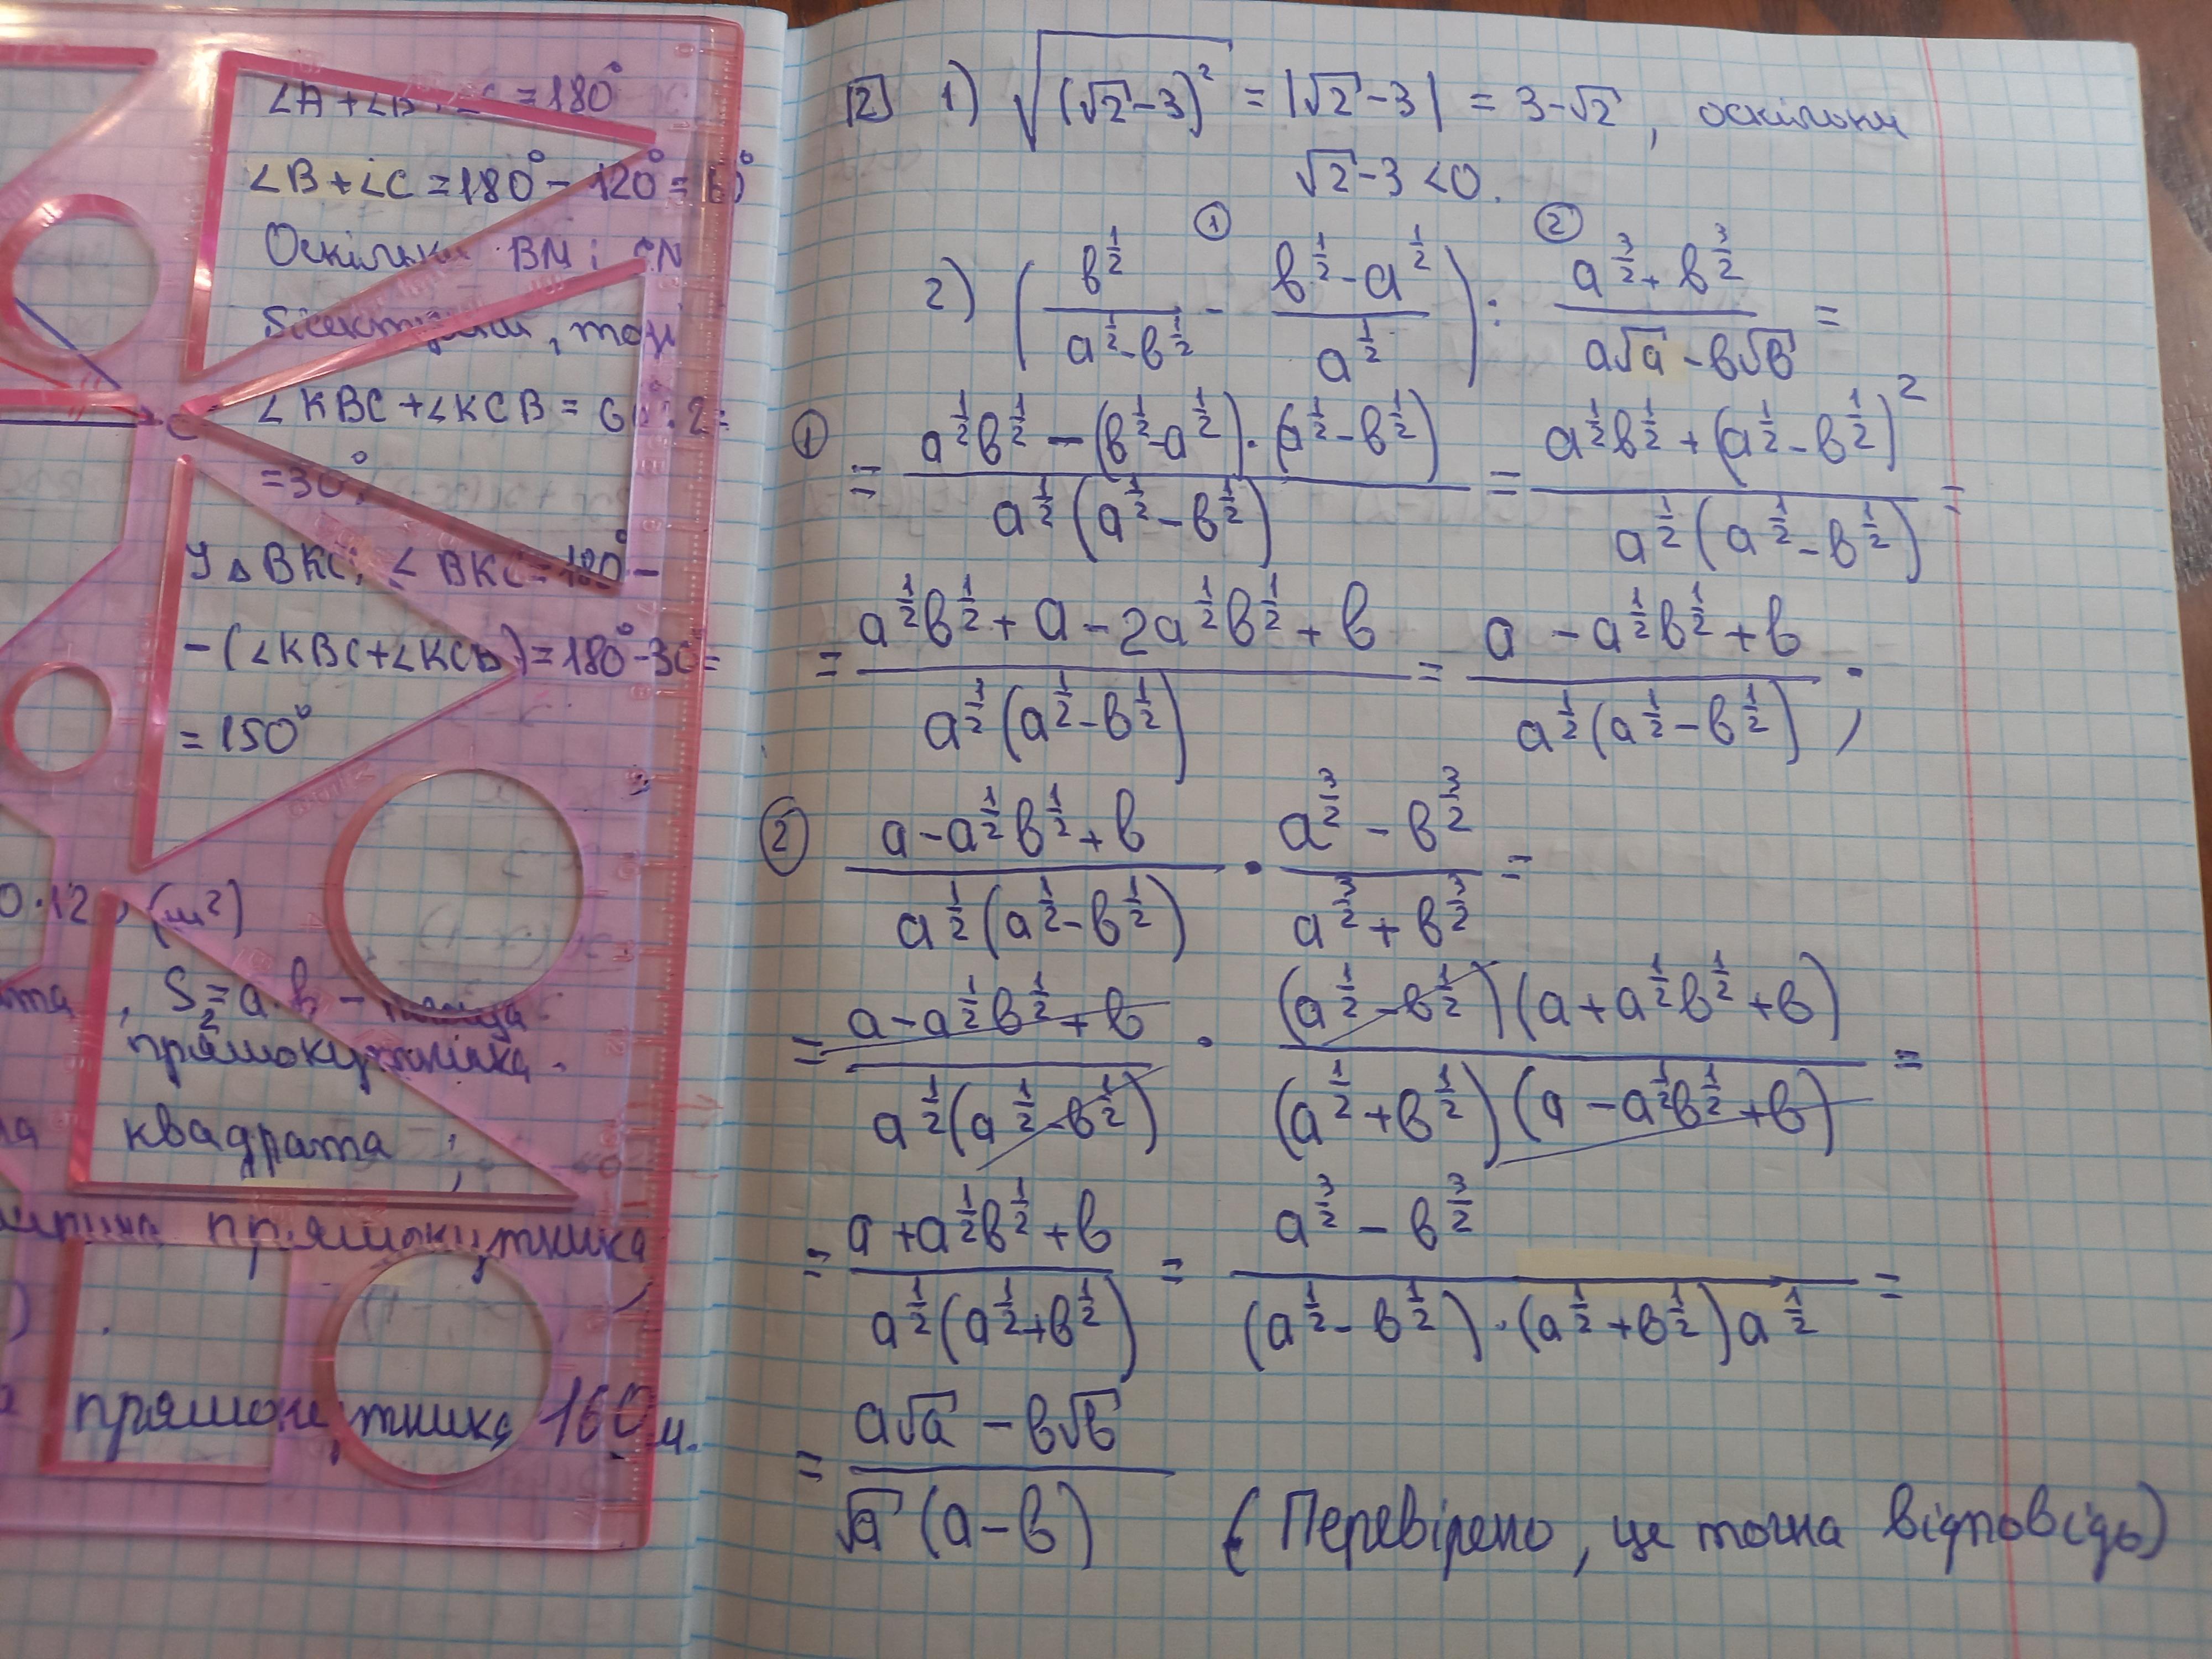 ∠A+∠B+∠C=180°
∠B+∠C=180°-120°=60°
Оскільки BM і CN
бісектриси, тоді
∠KBC+∠KCB=60:2=
=30°;
У △BKC: ∠BKC=180°-
-(∠KBC+∠KCB)=180°-30°=
=150°
0·12, (м²)
, S₂=a·b - площа
прямокутника.
квадрата ;
прямокутника
прямокутника 160 м.
[2] 1) √((√2-3)²) = |√2-3| = 3-√2, оскільки
√2-3<0.
① ②
2) (в^(1/2)/(a^(1/2)-в^(1/2)) - (в^(1/2)-a^(1/2))/a^(1/2)) : (a^(3/2)+в^(3/2))/(a√a-в√в) =
① = (a^(1/2)в^(1/2)-(в^(1/2)-a^(1/2))·(a^(1/2)-в^(1/2)))/(a^(1/2)(a^(1/2)-в^(1/2))) = (a^(1/2)в^(1/2)+(a^(1/2)-в^(1/2))²)/(a^(1/2)(a^(1/2)-в^(1/2))) =
= (a^(1/2)в^(1/2)+a-2a^(1/2)в^(1/2)+в)/(a^(1/2)(a^(1/2)-в^(1/2))) = (a-a^(1/2)в^(1/2)+в)/(a^(1/2)(a^(1/2)-в^(1/2))) ;
② (a-a^(1/2)в^(1/2)+в)/(a^(1/2)(a^(1/2)-в^(1/2))) · (a^(3/2)-в^(3/2))/(a^(3/2)+в^(3/2)) =
= (a-a^(1/2)в^(1/2)+в)/(a^(1/2)(a^(1/2)-в^(1/2))) · ((a^(1/2)-в^(1/2))(a+a^(1/2)в^(1/2)+в))/((a^(1/2)+в^(1/2))(a-a^(1/2)в^(1/2)+в)) =
= (a+a^(1/2)в^(1/2)+в)/(a^(1/2)(a^(1/2)+в^(1/2))) = (a^(3/2)-в^(3/2))/((a^(1/2)-в^(1/2))·(a^(1/2)+в^(1/2))a^(1/2)) =
= (a√a-в√в)/(√a(a-в)) (Перевірено, це точна відповідь)